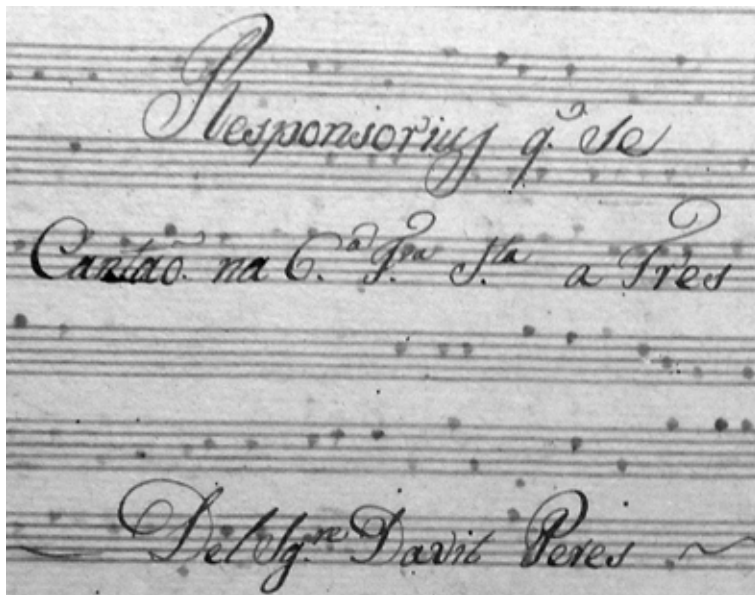 Responsorius q.^a Se
Cantaõ. na 6.^a F.^ra S.^ta a Tres
Del Sg.^re Davit Peres